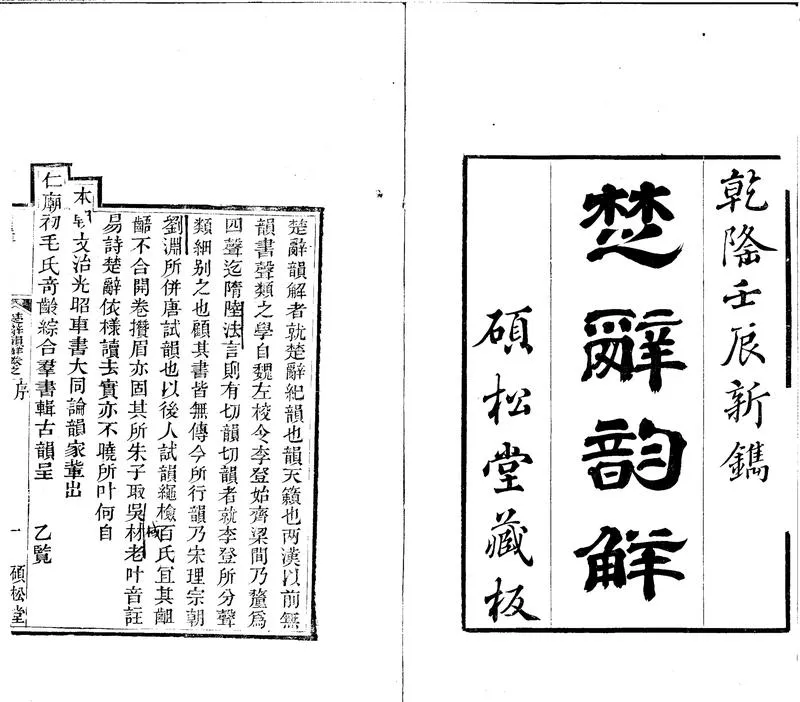 乾隆壬辰新鐫
楚辭韵解
碩松堂藏板
楚辭韻解者就楚辭紀韻也韻天籟也两漢以前無
韻書聲類之學自魏左校令李登始齊梁間乃釐爲
四聲迄隋陸法言則有切韻切韻者就李登所分聲
類細别之也顧其書皆無傳今所行韻乃宋理宗朝
劉淵所併唐試韻也以後人試韻繩檢百氏宜其齟
齬不合開卷攢眉亦固其所朱子取吳棫材老叶音註
易詩楚辭依樣讀去實亦不曉所叶何自
本朝文治光昭車書大同論韻家輩出
仁廟初毛氏奇齡綜合羣書輯古韻呈 乙覧
楚辭韻解卷之 序 一 碩松堂